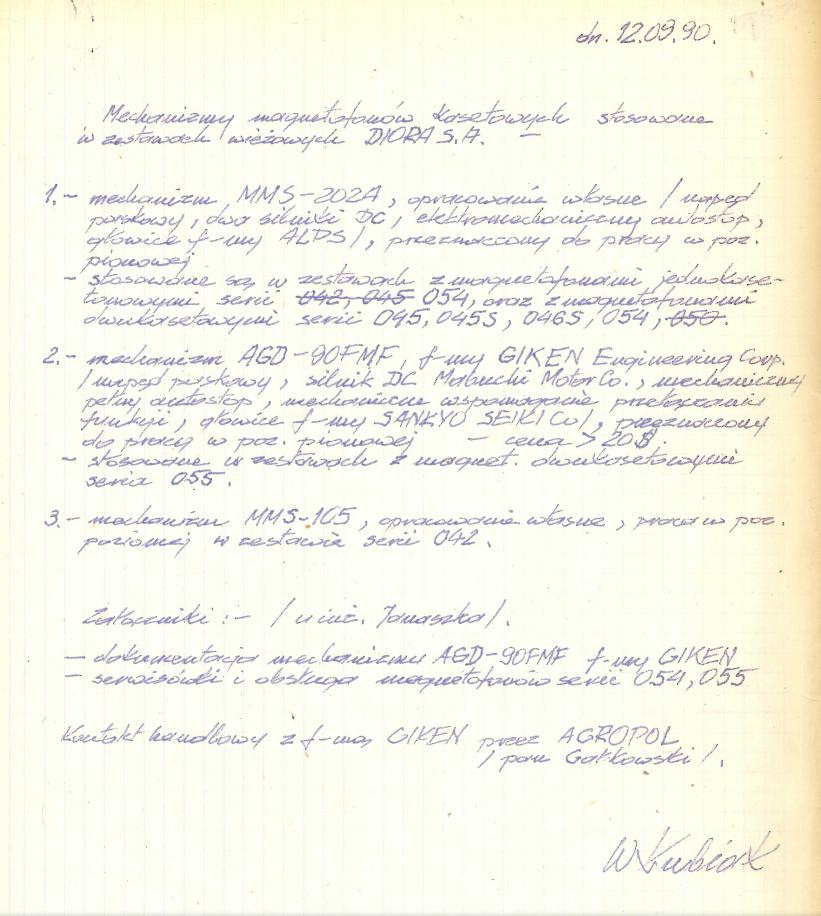 dn. 12.09.90.
Mechanizmy magnetofonów kasetowych stosowane
w zestawach wieżowych DIORA S.A. —
1. – mechanizm MMS-202A, opracowanie własne / napęd
paskowy, dwa silniki DC, elektromechaniczny autostop,
głowice f-my ALPS/, przeznaczony do pracy w poz.
pionowej
– stosowane są w zestawach z magnetofonami jednokase-
towymi serii 042, 045 054, oraz z magnetofonami
dwukasetowymi serii 045, 045S, 046S, 054, 050.
2. – mechanizm AGD-90FMF, f-my GIKEN Engineering Corp.
/ napęd paskowy, silnik DC Mabuchi Motor Co., mechaniczny
pełny autostop, mechaniczne wspomaganie przełączania
funkcji, głowice f-my SANKYO SEIKI Co/, przeznaczony
do pracy w poz. pionowej – cena > 20$.
– stosowane w zestawach z magnet. dwukasetowymi
seria 055.
3. – mechanizm MMS-105, opracowanie własne, praca w poz.
poziomej w zestawie serii 042.
Załączniki :– / u inż. Janaszka/.
– dokumentacja mechanizmu AGD-90FMF f-my GIKEN
– serwisówki i obsługa magnetofonów serii 054, 055
Kontakt handlowy z f-mą GIKEN przez AGROPOL
/ pan Gałkowski /.
W Kubiak